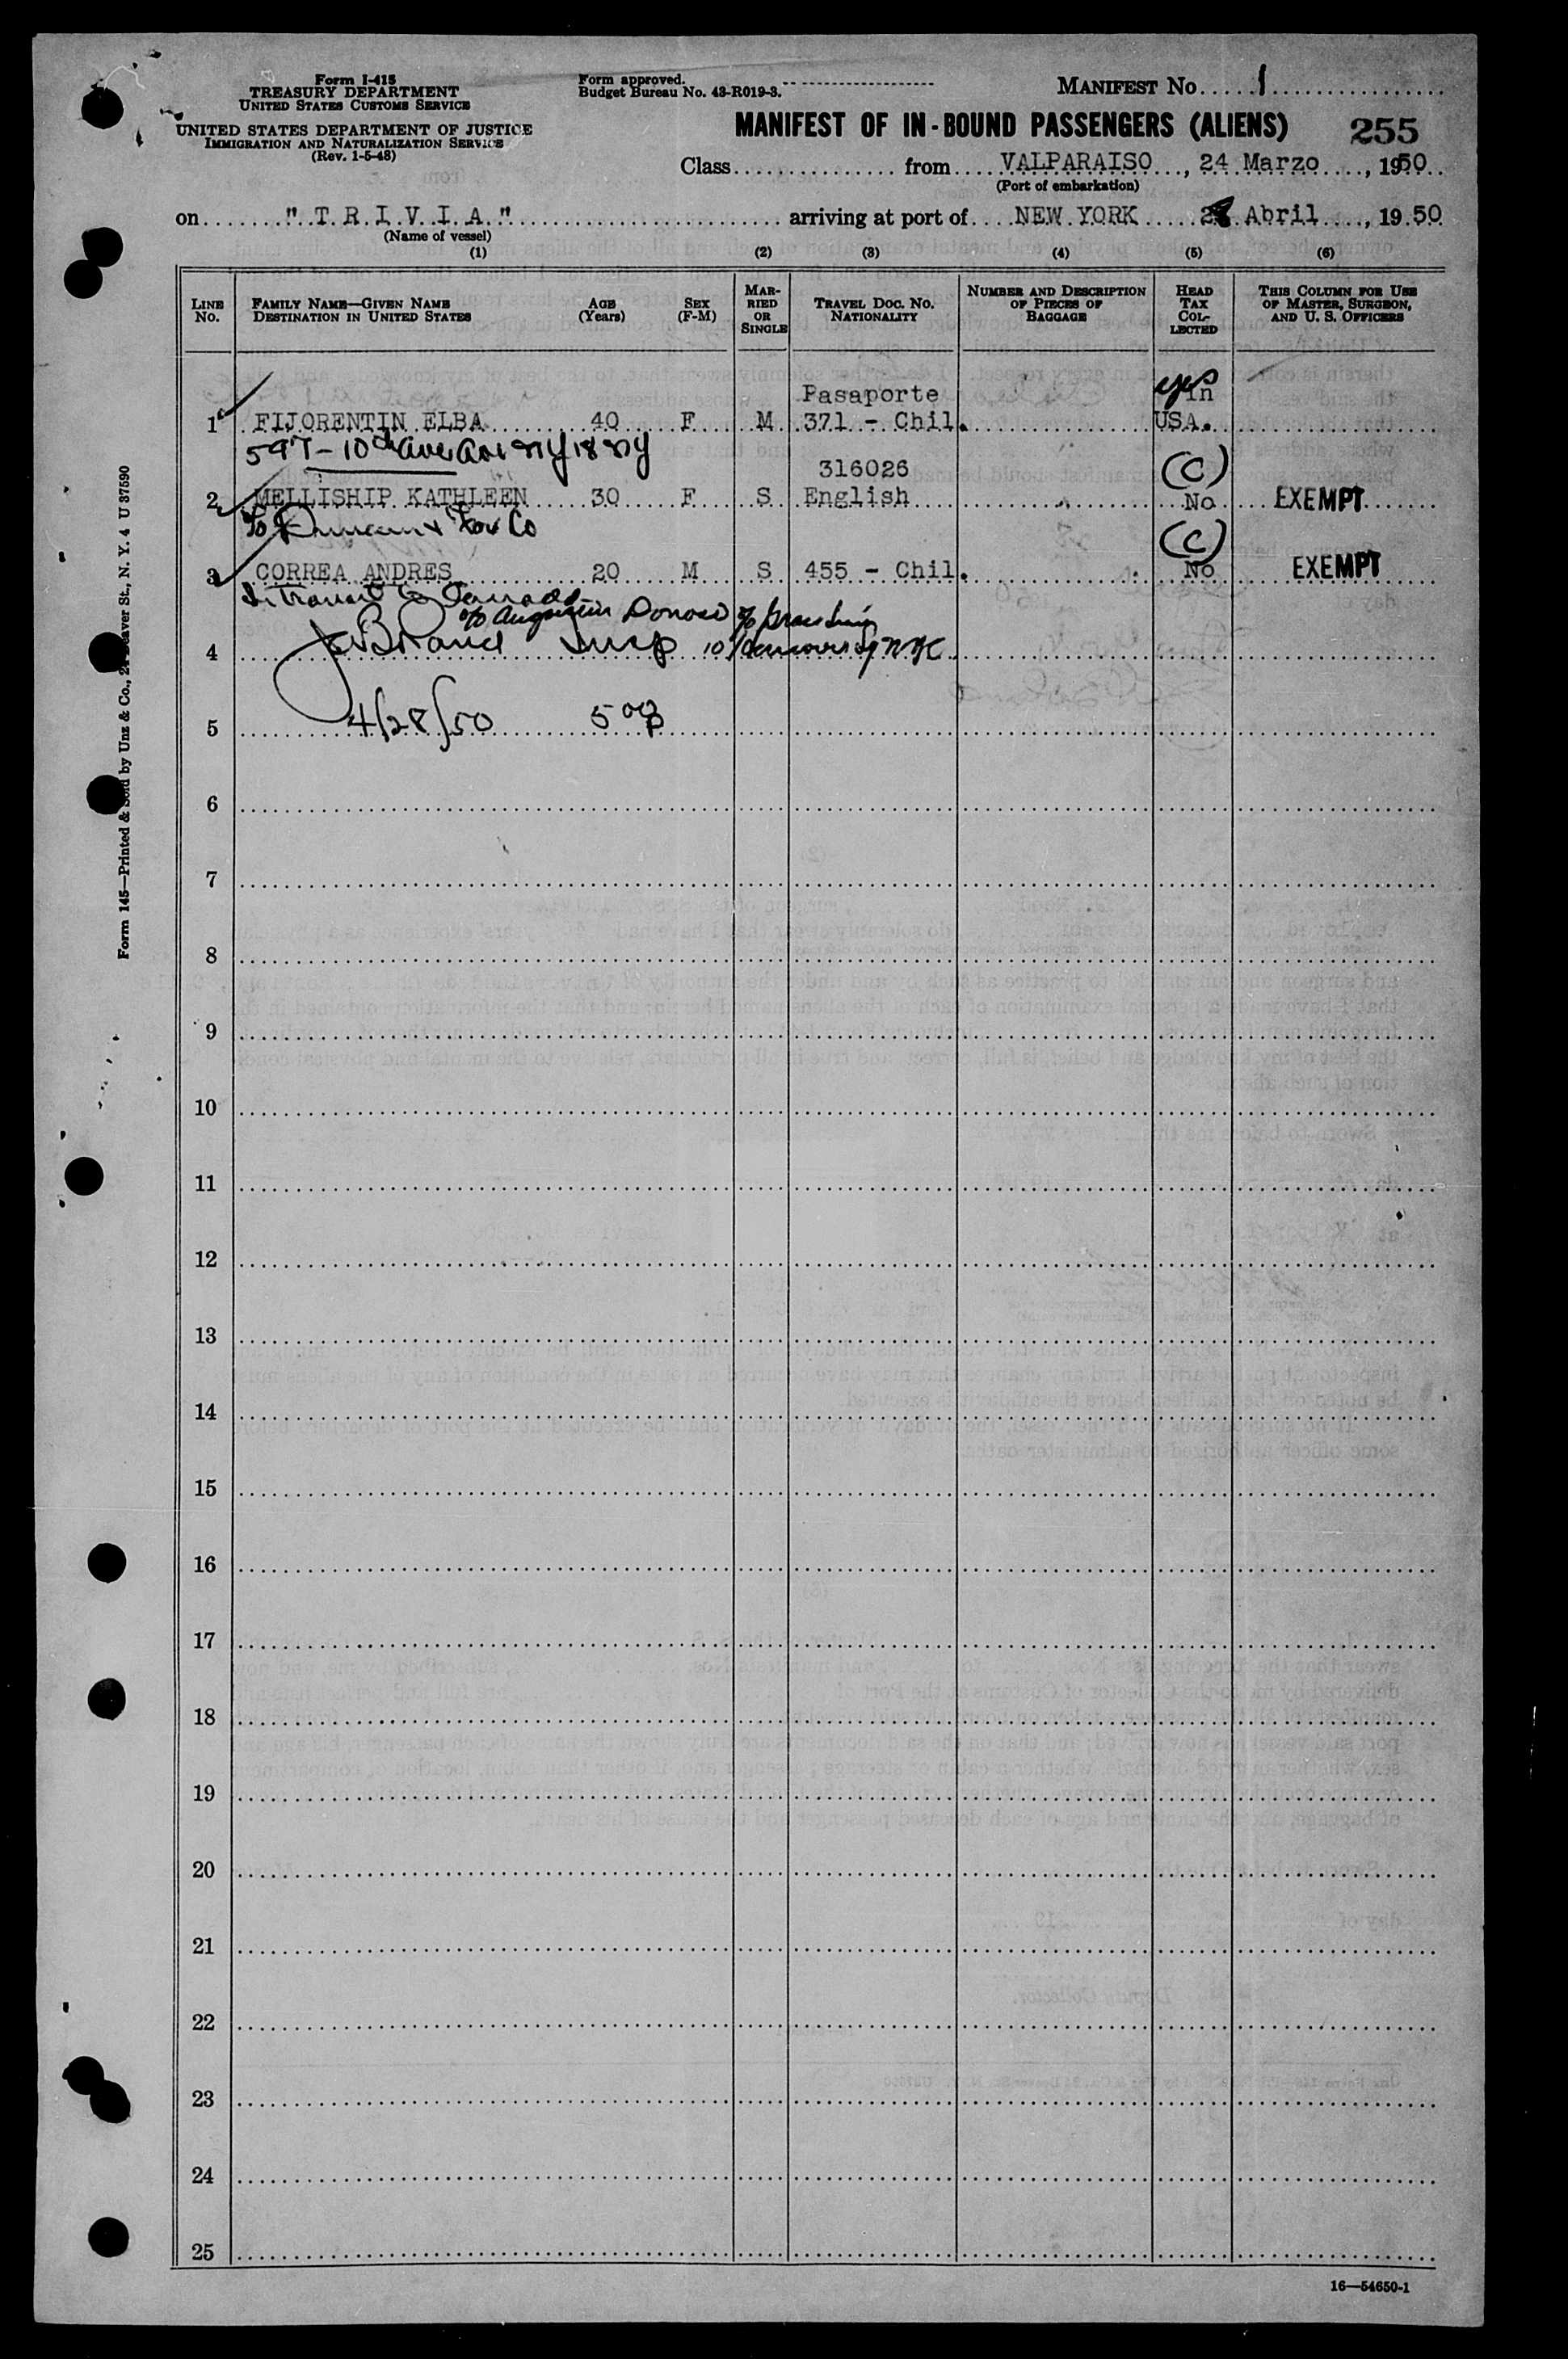 Form I-415
TREASURY DEPARTMENT
UNITED STATES CUSTOMS SERVICE
UNITED STATES DEPARTMENT OF JUSTICE
IMMIGRATION AND NATURALIZATION SERVICE
(Rev. 1-5-48)
Form approved.
Budget Bureau No. 43-R019-3.
MANIFEST No. 1
MANIFEST OF IN-BOUND PASSENGERS (ALIENS) 255
Class from VALPARAISO, 24 Marzo, 1950
(Port of embarkation)
on "T R I V I A" arriving at port of NEW YORK 28 Abril, 1950
(Name of vessel)
(1) (2) (3) (4) (5) (6)
LINE No. FAMILY NAME—GIVEN NAME DESTINATION IN UNITED STATES AGE (Years) SEX (F-M) MARRIED OR SINGLE TRAVEL DOC. NO. NATIONALITY NUMBER AND DESCRIPTION OF PIECES OF BAGGAGE HEAD TAX COLLECTED THIS COLUMN FOR USE OF MASTER, SURGEON, AND U. S. OFFICERS
Pasaporte yes in
1 FIJORENTIN ELBA 40 F M 371 - Chil. USA.
597 - 10th Ave NY 18 NY
316026 (C)
2 MELLISHIP KATHLEEN 30 F S English No EXEMPT
c/o Duncan Fox Co
(C)
3 CORREA ANDRES 20 M S 455 - Chil. No EXEMPT
In transit to Canada
c/o Augustin Donoso c/o Grace Line
4 Insp 10 Hanover Sq NYC
5 4/28/50 5 00 p
6
7
8
9
10
11
12
13
14
15
16
17
18
19
20
21
22
23
24
25
16—54650-1
Form 145—Printed & Sold by Unz & Co., 24 Beaver St., N. Y. 4 U 37590